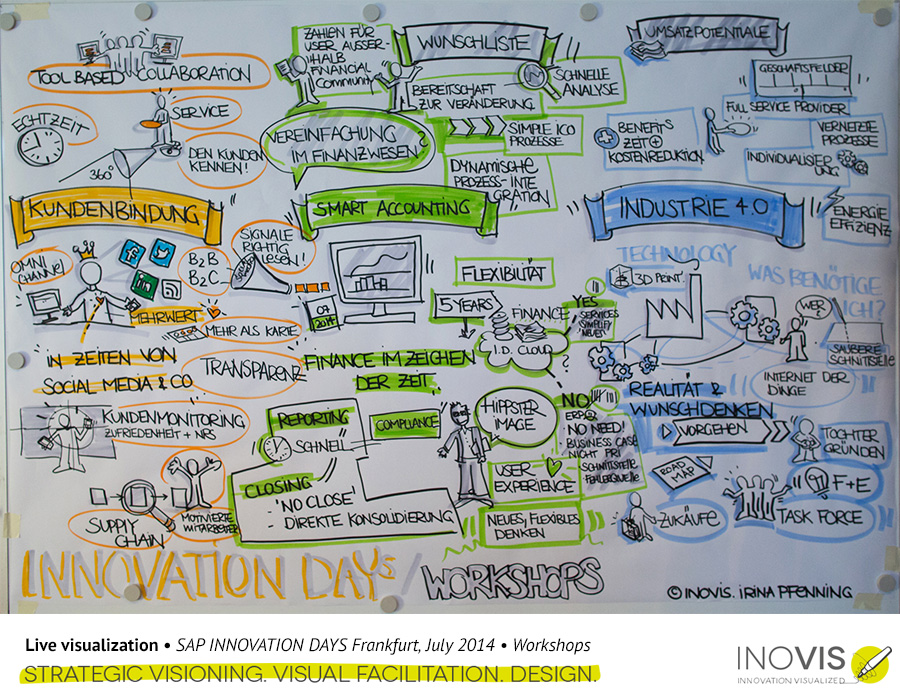 TOOL BASED COLLABORATION
ECHTZEIT
SERVICE
DEN KUNDEN
KENNEN!
360°
KUNDENBINDUNG
OMNI
CHANNEL
B2B
B2C
SIGNALE
RICHTIG
LESEN!
MEHRWERT
MEHR ALS KARTE
IN ZEITEN VON
SOCIAL MEDIA & CO
TRANSPARENZ
KUNDENMONITORING
ZUFRIEDENHEIT + NPS
SUPPLY
CHAIN
MOTIVIERTE
MITARBEITER
ZAHLEN FÜR
USER AUSSER-
HALB
FINANCIAL
COMMUNITY
WUNSCHLISTE
BEREITSCHAFT
ZUR VERÄNDERUNG
SCHNELLE
ANALYSE
VEREINFACHUNG
IM FINANZWESEN?
SIMPLE ICO
PROZESSE
DYNAMISCHE
PROZESS-INTE
GRATION
SMART ACCOUNTING
07
2014
FLEXIBILITÄT
5 YEARS
FINANCE
I.D. CLOUD
?
YES
SERVICES
FINANCE IM ZEICHEN
DER ZEIT
NO
NO NEED!
BUSINESS CASE
NICHT PRI
SCHNITTSTELLE
REPORTING
SCHNELL
COMPLIANCE
CLOSING
'NO CLOSE'
- DIREKTE KONSOLIDIERUNG
HIPPSTER
IMAGE
USER
EXPERIENCE
NEUES, FLEXIBLES
DENKEN
UMSATZPOTENTIALE
GESCHÄFTSFELDER
FULL SERVICE PROVIDER
BENEFITS
ZEIT +
KOSTENREDUKTION
VERNETZTE
PROZESSE
INDIVIDUALISIER
UNG
INDUSTRIE 4.0
ENERGIE
EFFIZIENZ
TECHNOLOGY
3D PRINT
WAS BENÖTIGE
ICH?
WER?
SAUBERE
SCHNITTSTELLE
INTERNET DER
DINGE
REALITÄT &
WUNSCHDENKEN
VORGEHEN
TOCHTER
GRÜNDEN
ROAD
MAP
F+E
ZUKÄUFE
TASK FORCE
INNOVATION DAYS / WORKSHOPS
© INOVIS. IRINA PFENNING
Live visualization • SAP INNOVATION DAYS Frankfurt, July 2014 • Workshops
STRATEGIC VISIONING. VISUAL FACILITATION. DESIGN.
INOVIS
INNOVATION VISUALIZED